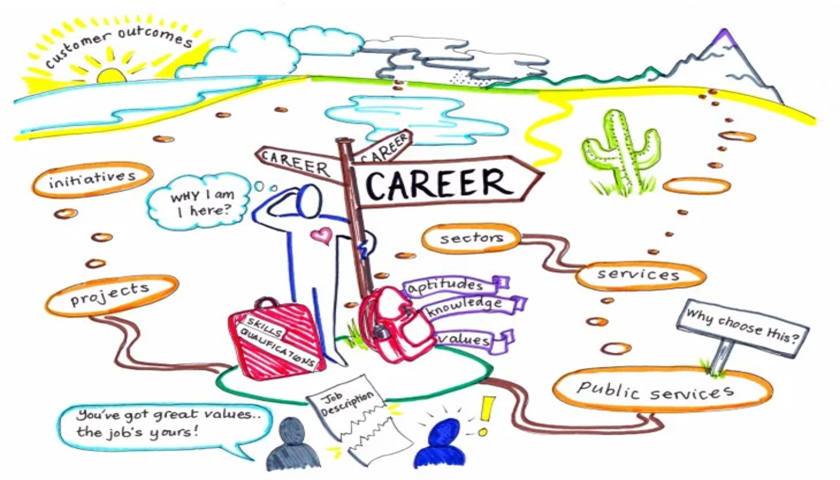 customer outcomes
CAREER
CAREER
CAREER
initiatives
WHY I am
I here?
sectors
services
projects
aptitudes
knowledge
values
SKILLS
QUALIFICATIONS
Why choose this?
Job
Description
public services
You've got great values..
the job's yours!
!